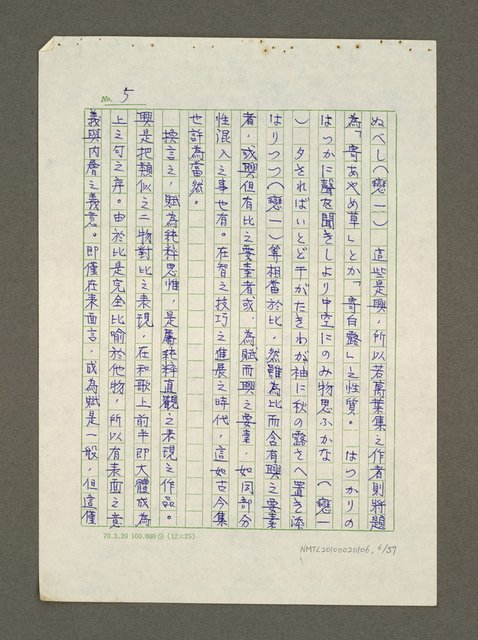 No. 5
ぬべし（戀一） 這些是興，所以若萬葉集之作者則將題
為「寄あやめ草」とか「寄白露」之性質。 はつかりの
はつかに聲を聞きしより中空にのみ物思ふかな （戀一
） 夕さればいとど干がたきわが袖に秋の露さへ置き添
はりつつ（戀一）等相當於比，然雖為比而含有興之要素
者，或興但有比之要素者或，為賦而興之要素，如同部分
性混入之事也有。在智之技巧之進展之時代，這如古今集
也許為當然。
換言之，賦為純粹思惟，是屬純粹直觀之表現之作品。
興是把類似之二物對比之表現，在和歌上前半即大體成為
上之句之序。由於比是完全比喻於他物，所以有表面之意
義與內層之義意。即僅在表面言，成為賦是一般，但這僅
70.3.20 100.000份 (12×25)
NMTL20100020106, 6/57